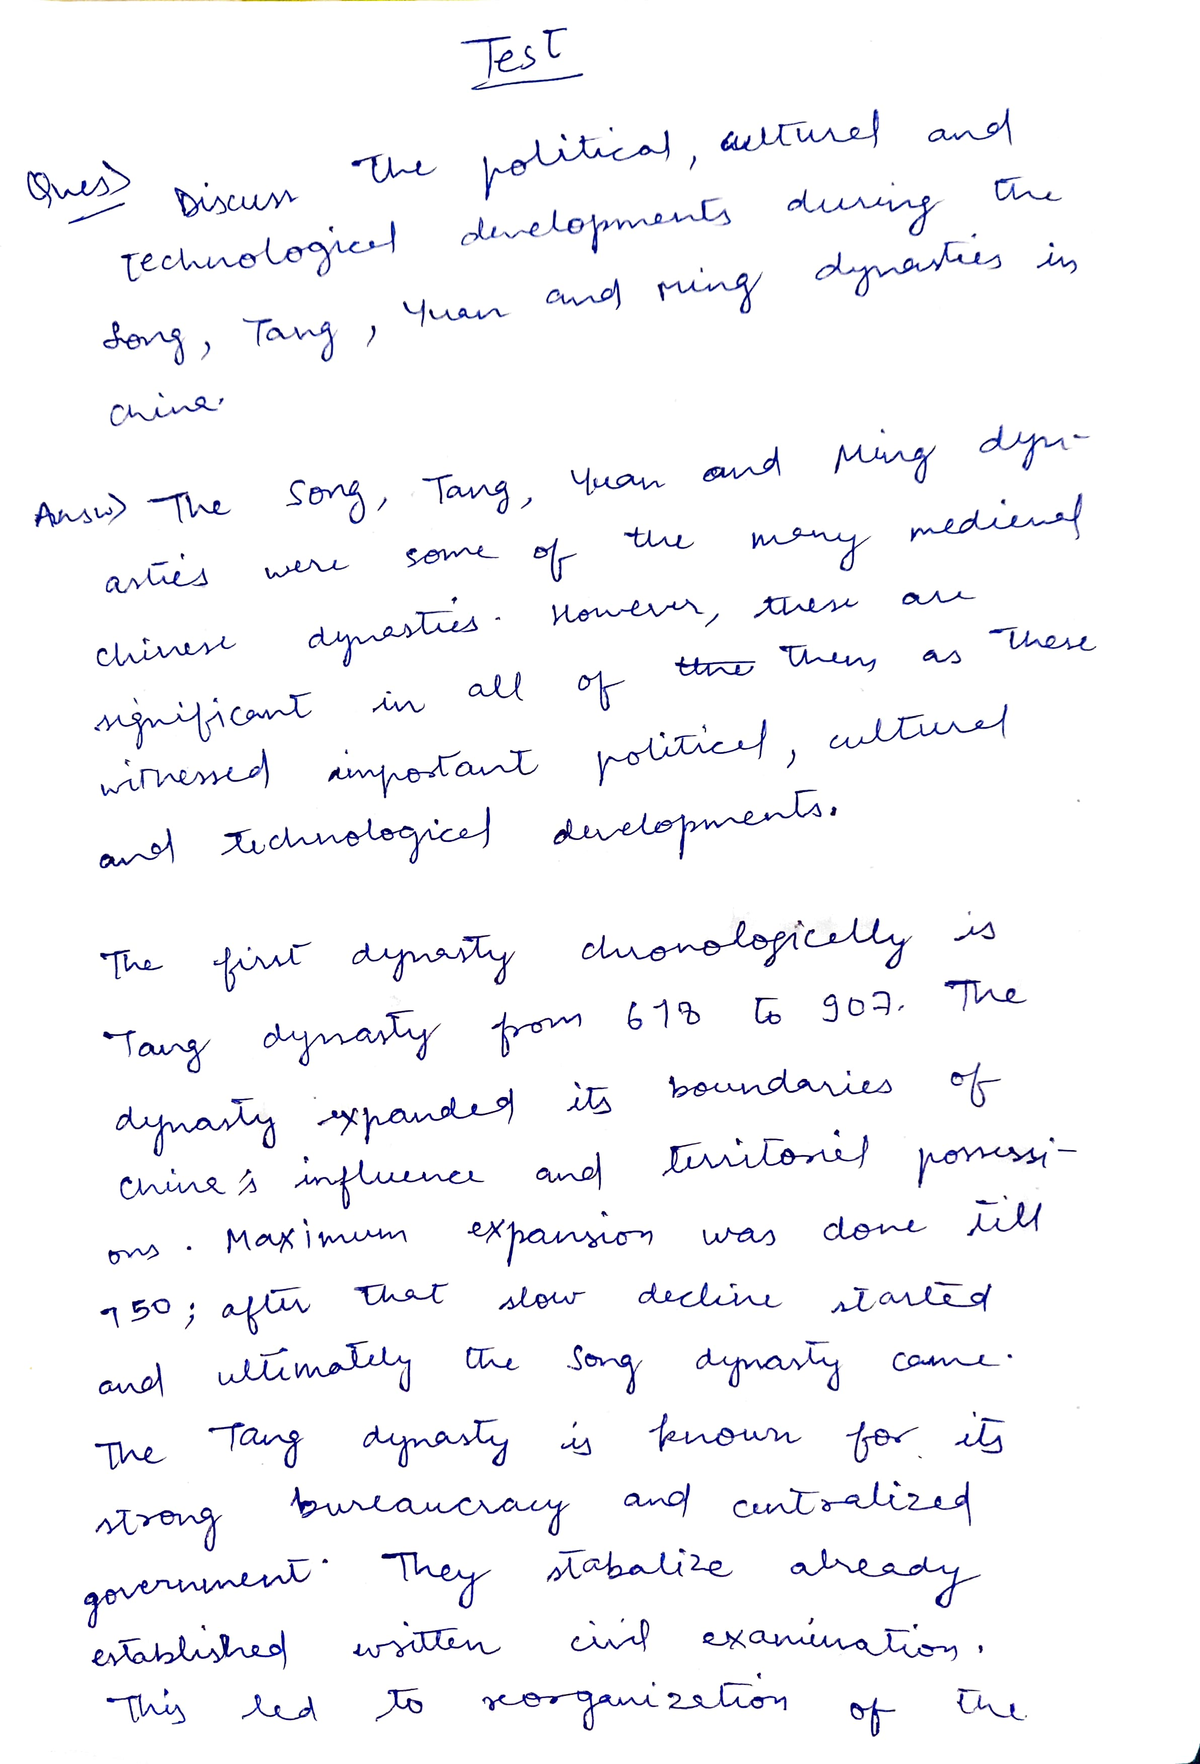 Test
Ques> Discuss the political, cultural and
technological developments during the
Song, Tang, Yuan and Ming dynasties in
China.
Answ> The Song, Tang, Yuan and Ming dyn-
asties were some of the many medieval
chinese dynasties. However, these are
significant in all of the them as these
witnessed important political, cultural
and technological developments.
The first dynasty chronologically is
Tang dynasty from 618 to 907. The
dynasty expanded its boundaries of
China's influence and territorial possessi-
ons. Maximum expansion was done till
750; after that slow decline started
and ultimately the Song dynasty came.
The Tang dynasty is known for its
strong bureaucracy and centralized
government. They stabalize already
established written civil examination.
This led to reorganization of the